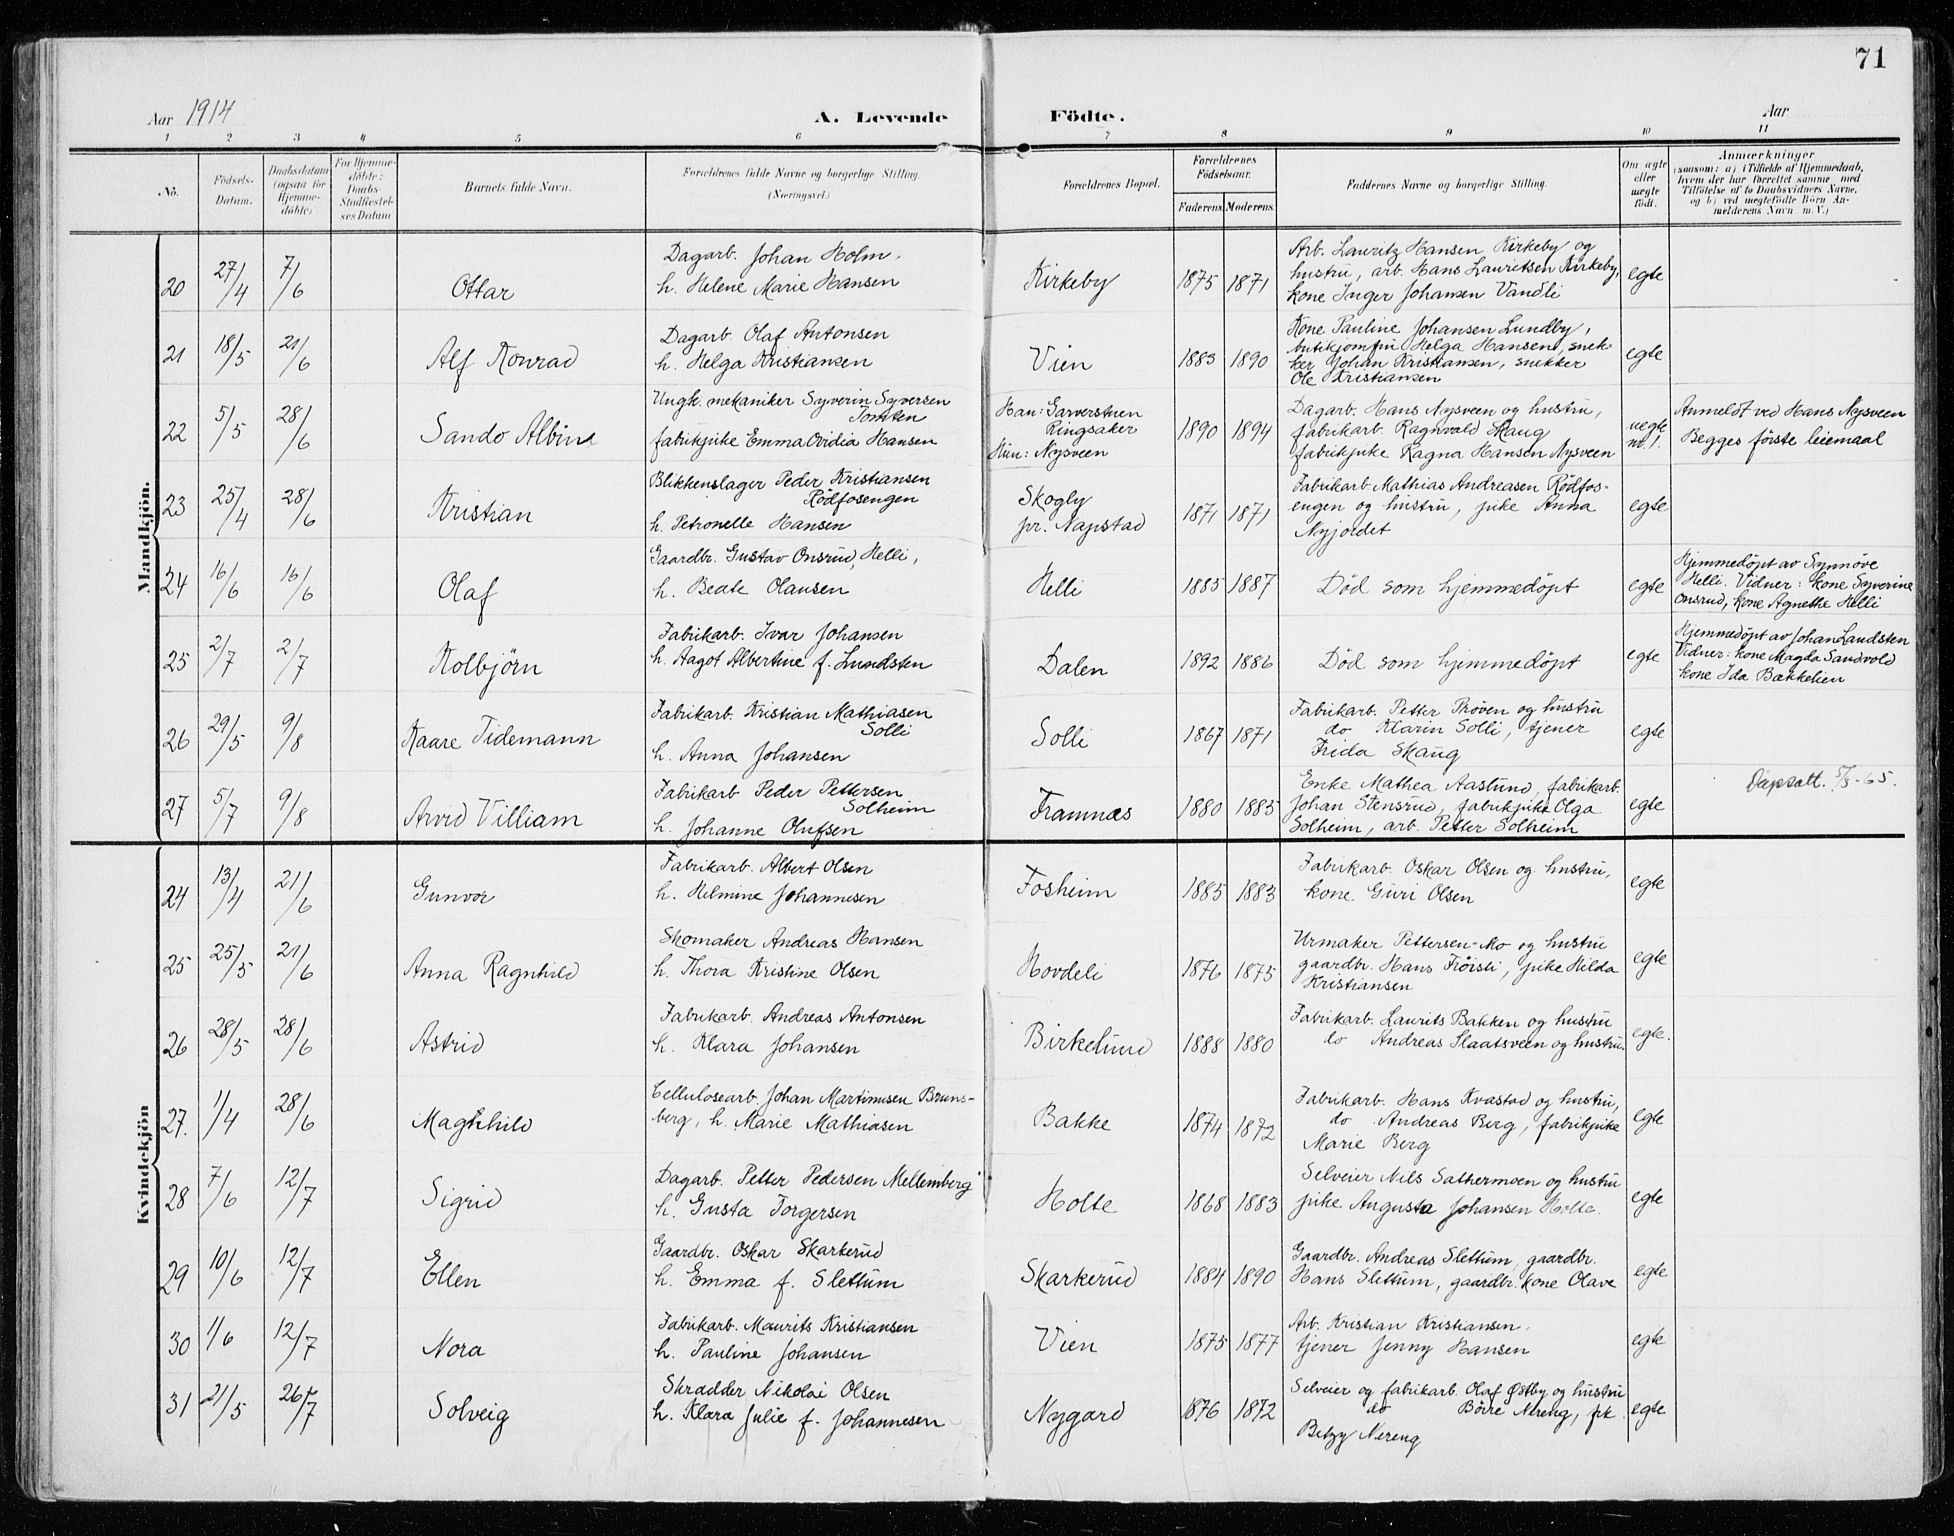 71
Aar 1914
A. Levende Födte.
Aar
1 2 3 4 5 6 7 8 9 10 11
No.
Födsels-Datum.
Daabsdatum (ogsaa for Hjemme-döbte)
For Hjemme-döbte: Daabs-Stadfæstel-ses Datum
Barnets fulde Navn.
Forældrenes fulde Navne og borgerlige Stilling. (Næringsvei.)
Forældrenes Bopæl.
Forældrenes Födselsaar.
Faderens. Moderens.
Faddernes Navne og borgerlige Stilling.
Om ægte eller uægte födt.
Anmærkninger (saasom: a) i Tilfælde af Hjemmedaab, hvem der har forrettet samme med Tilföielse af to Daabsvidners Navne, og b) ved uægtefödte Börn An-melderens Navn m. V.)
Mandkjön.
20 27/4 7/6 Ottar
Dagarb. Johan Holm,
h. Helene Marie Hansen
Kirkeby 1875 1871
Arb. Lauritz Hansen Kirkeby og
hustru, arb. Hans Lauritsen Kirkeby,
kone Inger Johansen Vandli
egte
21 18/5 21/6 Alf Konrad
Dagarb. Olaf Antonsen
h. Helga Kristiansen
Vien 1883 1890
Kone Pauline Johansen Lundby,
butikjomfru Helga Hansen, snek-
ker Johan Kristiansen, snekker
Ole Kristiansen
egte
22 5/5 28/6 Sando Albin
Ungk. mekaniker Syverin Syversen
Tomten
fabrikpike Emma Ovidia Hansen
Han: Garverstuen
Ringsaker
Hun: Nysveen
1890 1894
Dagarb. Hans Nysveen og hustru,
fabrikarb. Ragnvald Skaug
fabrikpike Ragna Hansen Nysveen
uegte
nr. 1.
Anmeldt ved Hans Nysveen
Begges første leiemaal
23 25/4 28/6 Kristian
Blikkenslager Peder Kristiansen
Rödfosengen
h. Petronelle Hansen
Skogly
pr. Napstad
1871 1871
Fabrikarb. Mathias Andreasen Rödfos-
engen og hustru, pike Anna
Nyjordet
egte
24 16/6 16/6 Olaf
Gaardbr. Gustav Onsrud, Helli,
h. Beate Olausen
Helli 1885 1887
Död som hjemmedöpt
egte
Hjemmedöpt av Synnöve
Helli. Vidner: kone Syverine
Onsrud, kone Agnethe Helli
25 2/7 2/7 Kolbjörn
Fabrikarb. Ivar Johansen
h. Aagot Albertine f. Lundsten
Dalen 1892 1886
Död som hjemmedöpt
egte
Hjemmedöpt av Johan Lundsten
Vidner: kone Magda Sandvold
kone Ida Bakkelien
26 29/5 9/8 Kaare Tidemann
Fabrikarb. Kristian Mathiasen
Solli
h. Anna Johansen
Solli 1867 1871
Fabrikarb. Petter Pröven og hustru
do Klarin Solli, tjener
Frida Skaug
egte
27 5/7 9/8 Arvid Villiam
Fabrikarb Peder Pettersen
Solheim
h. Johanne Olufsen
Framnæs 1880 1885
Enke Mathea Aaslund, fabrikarb.
Johan Stensrud, fabrikpike Olga
Solheim, arb. Petter Solheim
egte
Dåpsatt. 5/3-65.
Kvindekjön
24 13/4 21/6 Gunvor
Fabrikarb. Albert Olsen
h. Helmine Johannesen
Fosheim 1885 1883
Fabrikarb. Oskar Olsen og hustru,
kone Guri Olsen
egte
25 25/5 21/6 Anna Ragnhild
Skomaker Andreas Hansen
h. Thora Kristine Olsen
Hovdeli 1876 1875
Urmaker Pettersen-Mo og hustru
gaardbr. Hans Fröisli, pike Hilda
Kristiansen
egte
26 28/5 28/6 Astrid
Fabrikarb. Andreas Antonsen
h. Klara Johansen
Birkelund 1888 1880
Fabrikarb. Laurits Bakken og hustru
do Andreas Slaatsveen og hustru.
egte.
27. 1/4 28/6 Magnhild
Cellulosearb. Johan Martinusen Bruns-
berg, h. Marie Mathiasen
Bakke 1874 1872
Fabrikarb. Hans Kvastad og hustru,
do Andreas Berg, fabrikpike
Marie Berg
egte
28 7/6 12/7 Sigrid
Dagarb. Petter Pedersen Mellemberg
h. Gusta Torgersen
Holte 1868 1883
Selveier Nils Sathermoen og hustru
pike Augusta Johansen Holte.
egte
29 10/6 12/7 Ellen
Gaardbr. Oskar Skarkerud
h. Emma f. Slettum
Skarkerud 1884 1890
Gaardbr. Andreas Slettum, gaardbr.
Hans Slettum, gaardbr. kone Olave
egte
30 1/6 12/7 Nora
Fabrikarb. Maurits Kristiansen
h. Pauline Johansen
Vien 1875 1877
Arb. Kristian Kristiansen.
tjener Jenny Hansen
egte
31 21/5 26/7 Solveig
Skrædder Nikolai Olsen
h. Klara Julie f. Johannesen
Nygard 1876 1872
Selveier og fabrikarb. Olaf Østby og hustru
do Börre Nereng, pk.
Betzy Nereng
egte